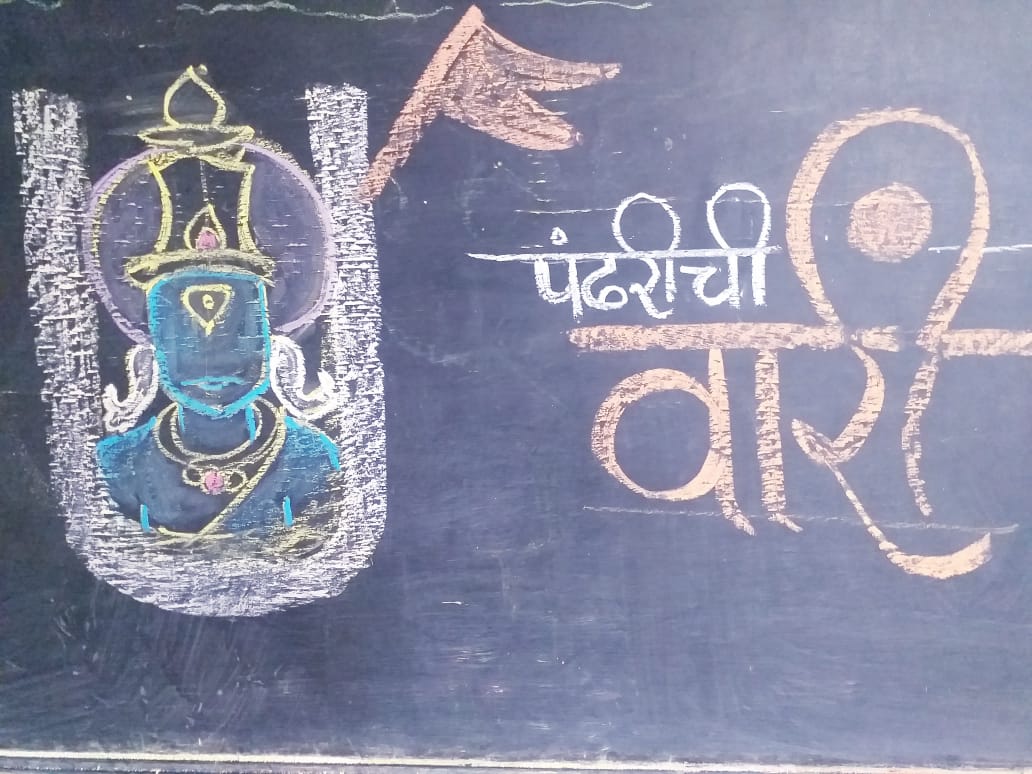 पंढरीची
वारी